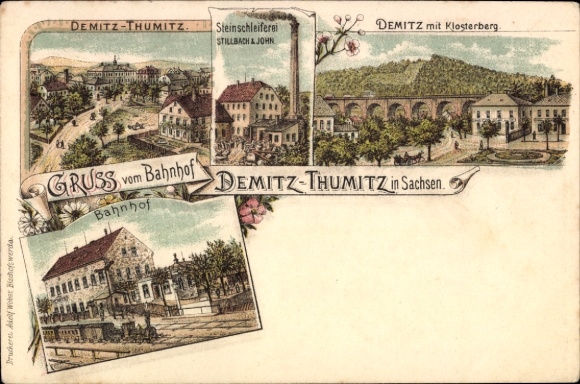 DEMITZ-THUMITZ.
Steinschleiferei
STILLBACH & JOHN.
DEMITZ mit Klosterberg.
GRUSS vom Bahnhof
DEMITZ-THUMITZ in Sachsen.
Bahnhof
Druckerei Adolf Weber, Bischofswerda.